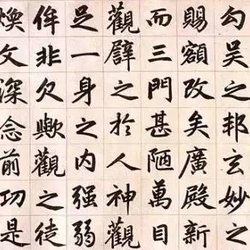 勾吴之邦玄妙之
賜額改矣廣殿新
而三門甚陋萬目
觀譬之於人神觀
足一身之内强弱
侔非欠歟觀之徒
煥文深念前功是